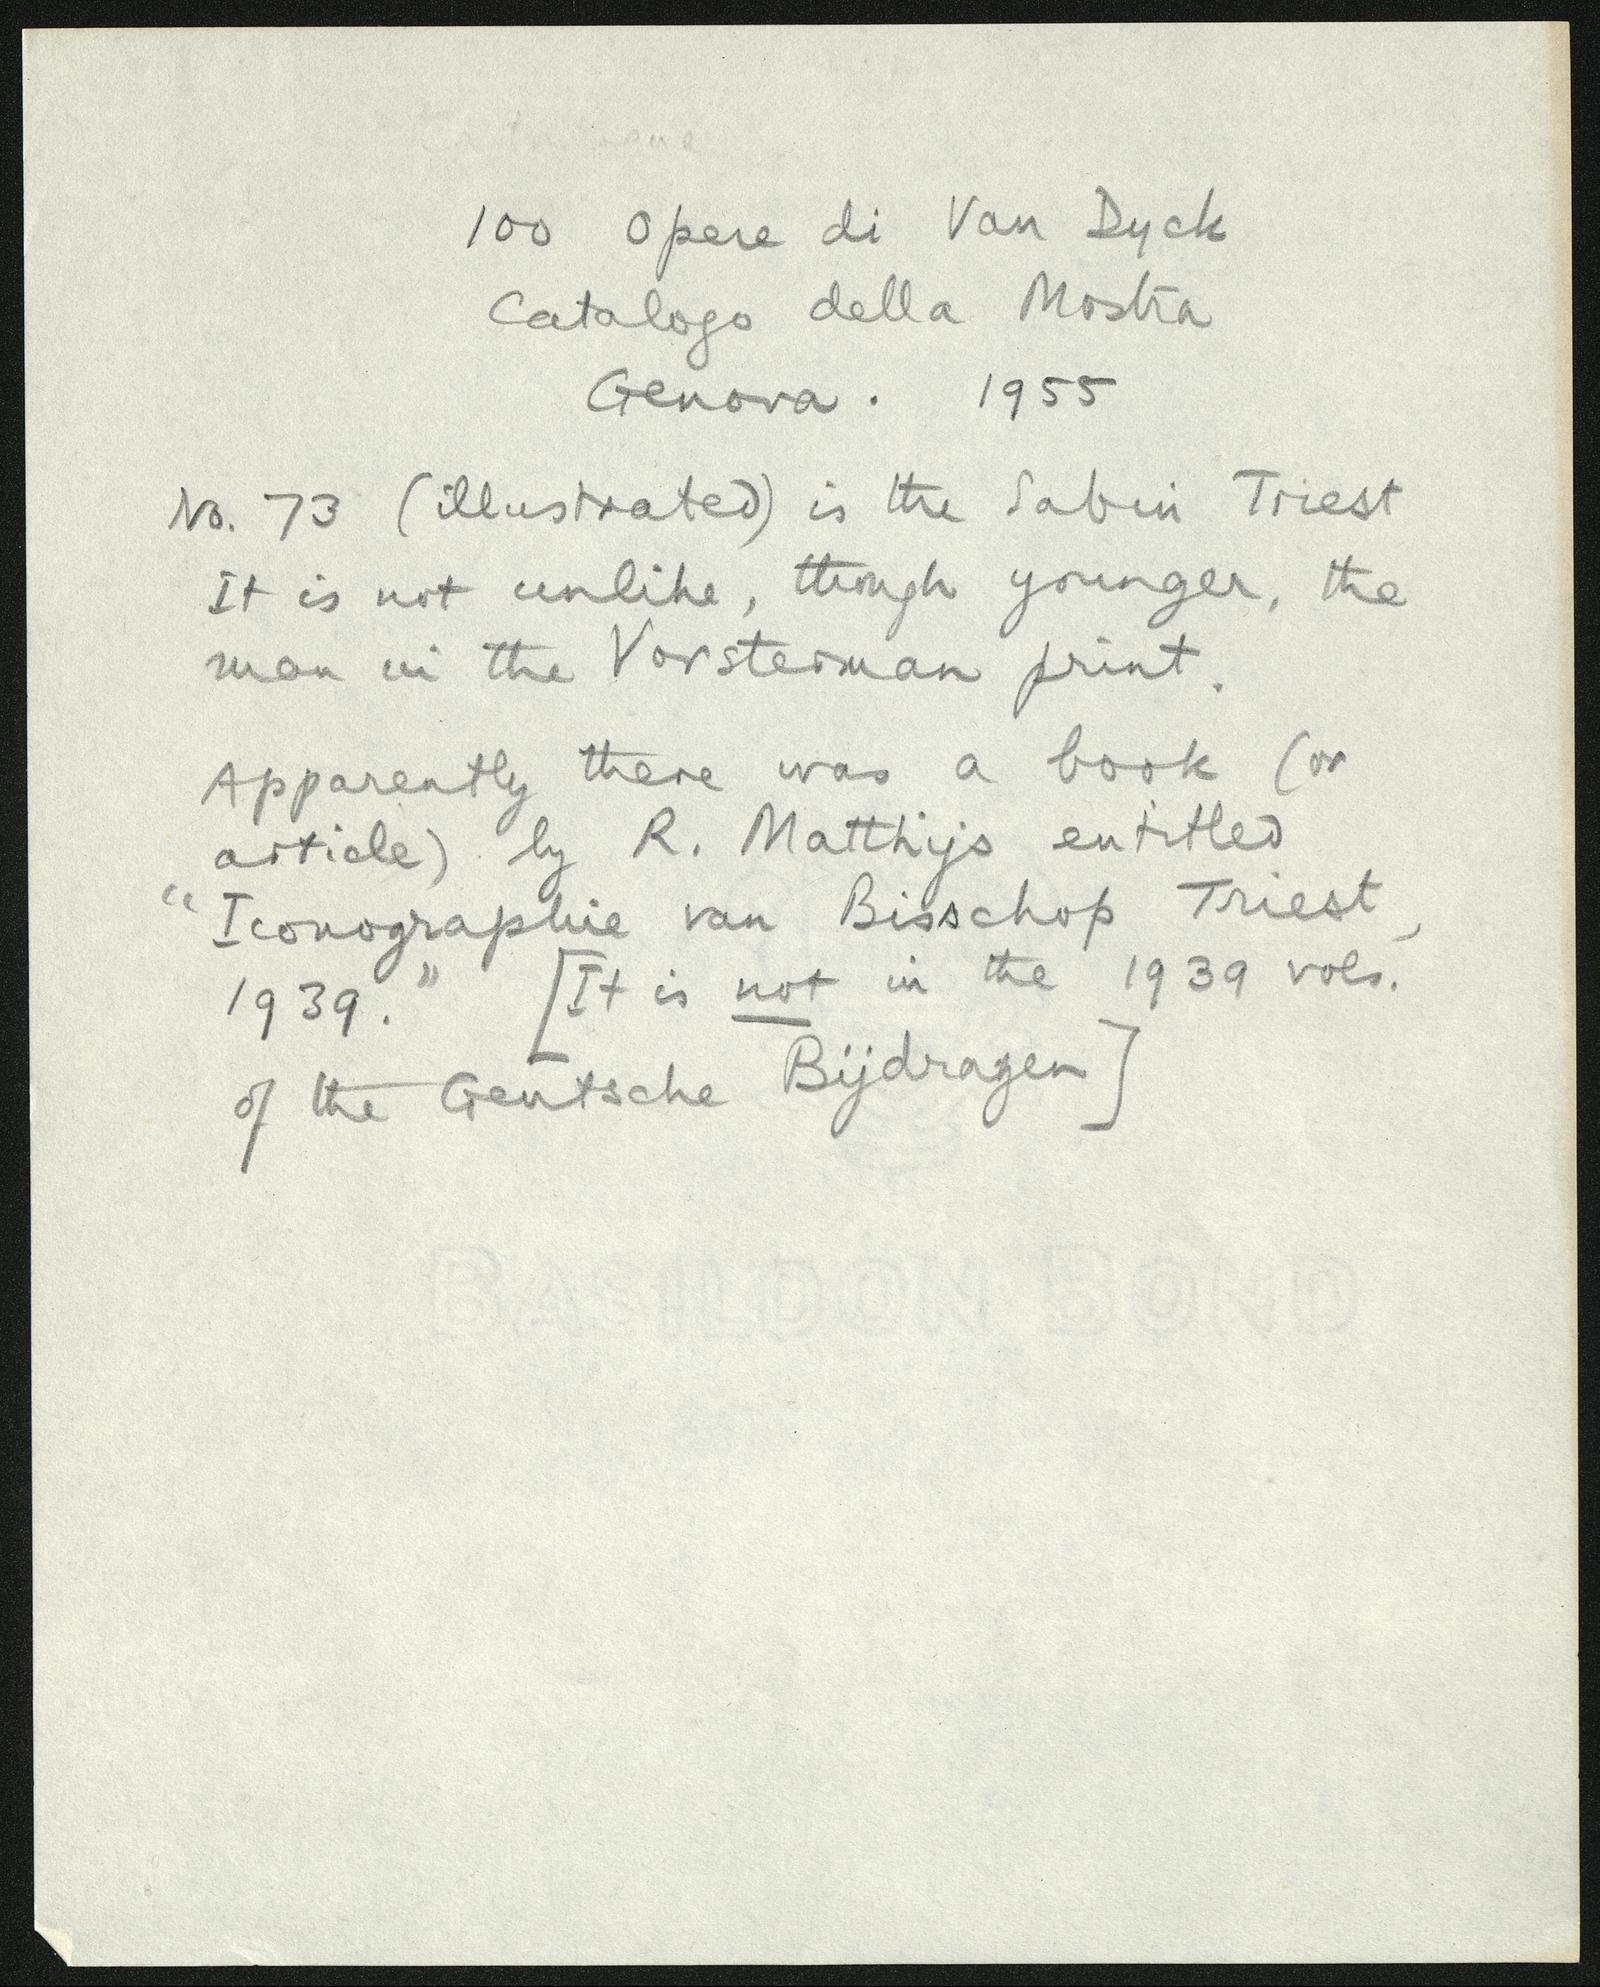 100 Opere di Van Dyck
Catalogo della Mostra
Genova. 1955
No. 73 (illustrated) is the Sabin Triest
It is not unlike, though younger, the
man in the Vorsterman print.
Apparently there was a book (or
article) by R. Matthijs entitled
"Iconographie van Bisschop Triest,
1939." [It is not in the 1939 vols.
of the Gentsche Bijdragen]
BASILDON BOND